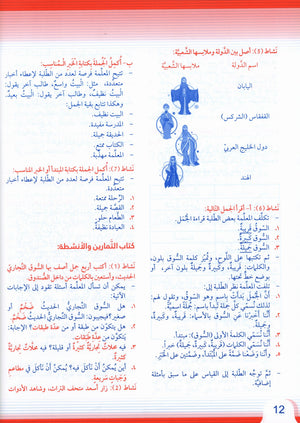 نشاط (5): أصل بين الدّولة وملابسها الشّعبيّة:
اسم الدّولة ملابسها الشّعبيّة
اليابان
القفقاس (الشركس)
دول الخليج العربيّ
الهند
نشاط (6): أ- أقرأ الجمل التالية:
- تكلّف المعلّمة بعض الطّلبة قراءة الجُمل.
1. السّوق قريبةٌ.
2. السّوق كبيرةٌ.
3. السّوق جميلةٌ.
- ثم تكتبها على اللّوح، وتميّز كلمة السّوق بلون،
والكلمات: قريبةٌ، وكبيرةٌ، وجميلةٌ بلون آخر، أو
بوضع خطّ تحتها.
- تلفت المعلّمة نظر الطّلبة إلى:
1. أنّ الجُمل بدأت باسم وهو السّوق، ولهذا
تسمّى كلّ جملة من هذه الجمل: جملة اسميّة.
2. وأنّنا أخبرنا عن السّوق بالأسماء: قريبةٌ، وكبيرةٌ،
وجميلةٌ.
3. وأنّنا نُسمّي الكلمة الأولى (السّوق): مبتدأ.
4. وأنّنا نُسمّي الكلمات (قريبةٌ، كبيرةٌ، جميلةٌ) خبراً.
5. وأنّنا وضعنا ضمّة على المُبتدأ، وضمّتين على الخبَر.
- ثمّ توجّه الطّلبة إلى القياس على ما سبق بأمثلة
إضافيّة.
ب- أكمل الجملة بكتابة الخبر المناسب:
- تتيح المعلّمة فرصة لعدد من الطّلبة لإعطاء أخبار
متعدّدة، مثل: البيت واسعٌ، طالب آخر يقول:
البيت نظيفٌ، وطالب آخر يقول: البيتُ بعيدٌ.
وهكذا تتابع بقية الجمل:
- البيت نظيف.
- المدرسة مفيدة.
- الحديقة جميلة.
- الكتاب ممتع.
- المعلّمة مهذّبة.
نشاط (7): أكمل الجملة بكتابة المبتدأ أو الخبر المناسب:
- تتيح المعلّمة فرصة لعدد من الطّلبة لإعطاء أخبار
متعدّدة.
1. الرّحلة متعة.
2. القصّة جميلة.
3. الطّعام حلو.
4. العيادة نظيفة.
كتاب التّمارين والأنشطة:
نشاط (1): أكتب أربع جمل أصف بها السّوق التّجاريّ
الحديث، وأستعين بالكلمات من داخل الصّندوق.
- يمكن أن تسأل المعلّمة أسئلة تقود إلى الإجابات
الآتية:
1. هل السّوق التّجاريّ الحديث ضخمٌ أو
صغير؟ فيجيبون: السّوق التّجاريّ الحديث ضخمٌ.
2. هل يتكوّن من طبقة أو من عدّة طبقات؟ الإجابة:
يتكوّن من عدّة طبقات.
3. هل فيه محلّات تجاريّة كثيرة أو قليلة؟ فيه محلّاتٌ تجاريّةٌ
كثيرةٌ.
4. أين يُمكن أنْ تأكل فيه؟ يُمكنُ أنْ نأكل في مطاعم
وجبات سريعة.
نشاط (4): زار أسعد متحف التراث، وشاهد الأدوات
12